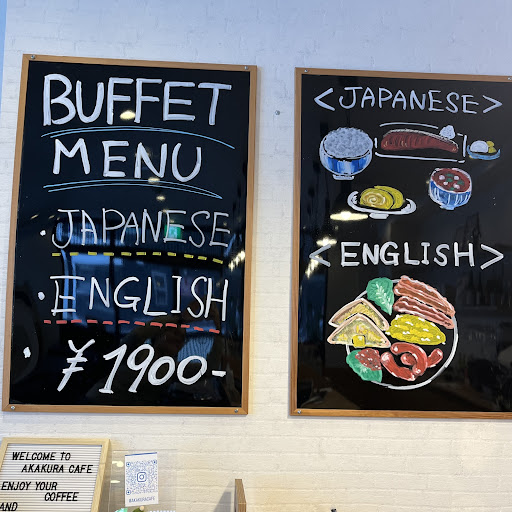 BUFFET
MENU
· JAPANESE
· ENGLISH
· ¥1900-
<JAPANESE>
<ENGLISH>
WELCOME TO
AKAKURA CAFE
ENJOY YOUR
COFFEE
AND
@AKAKURACAFE